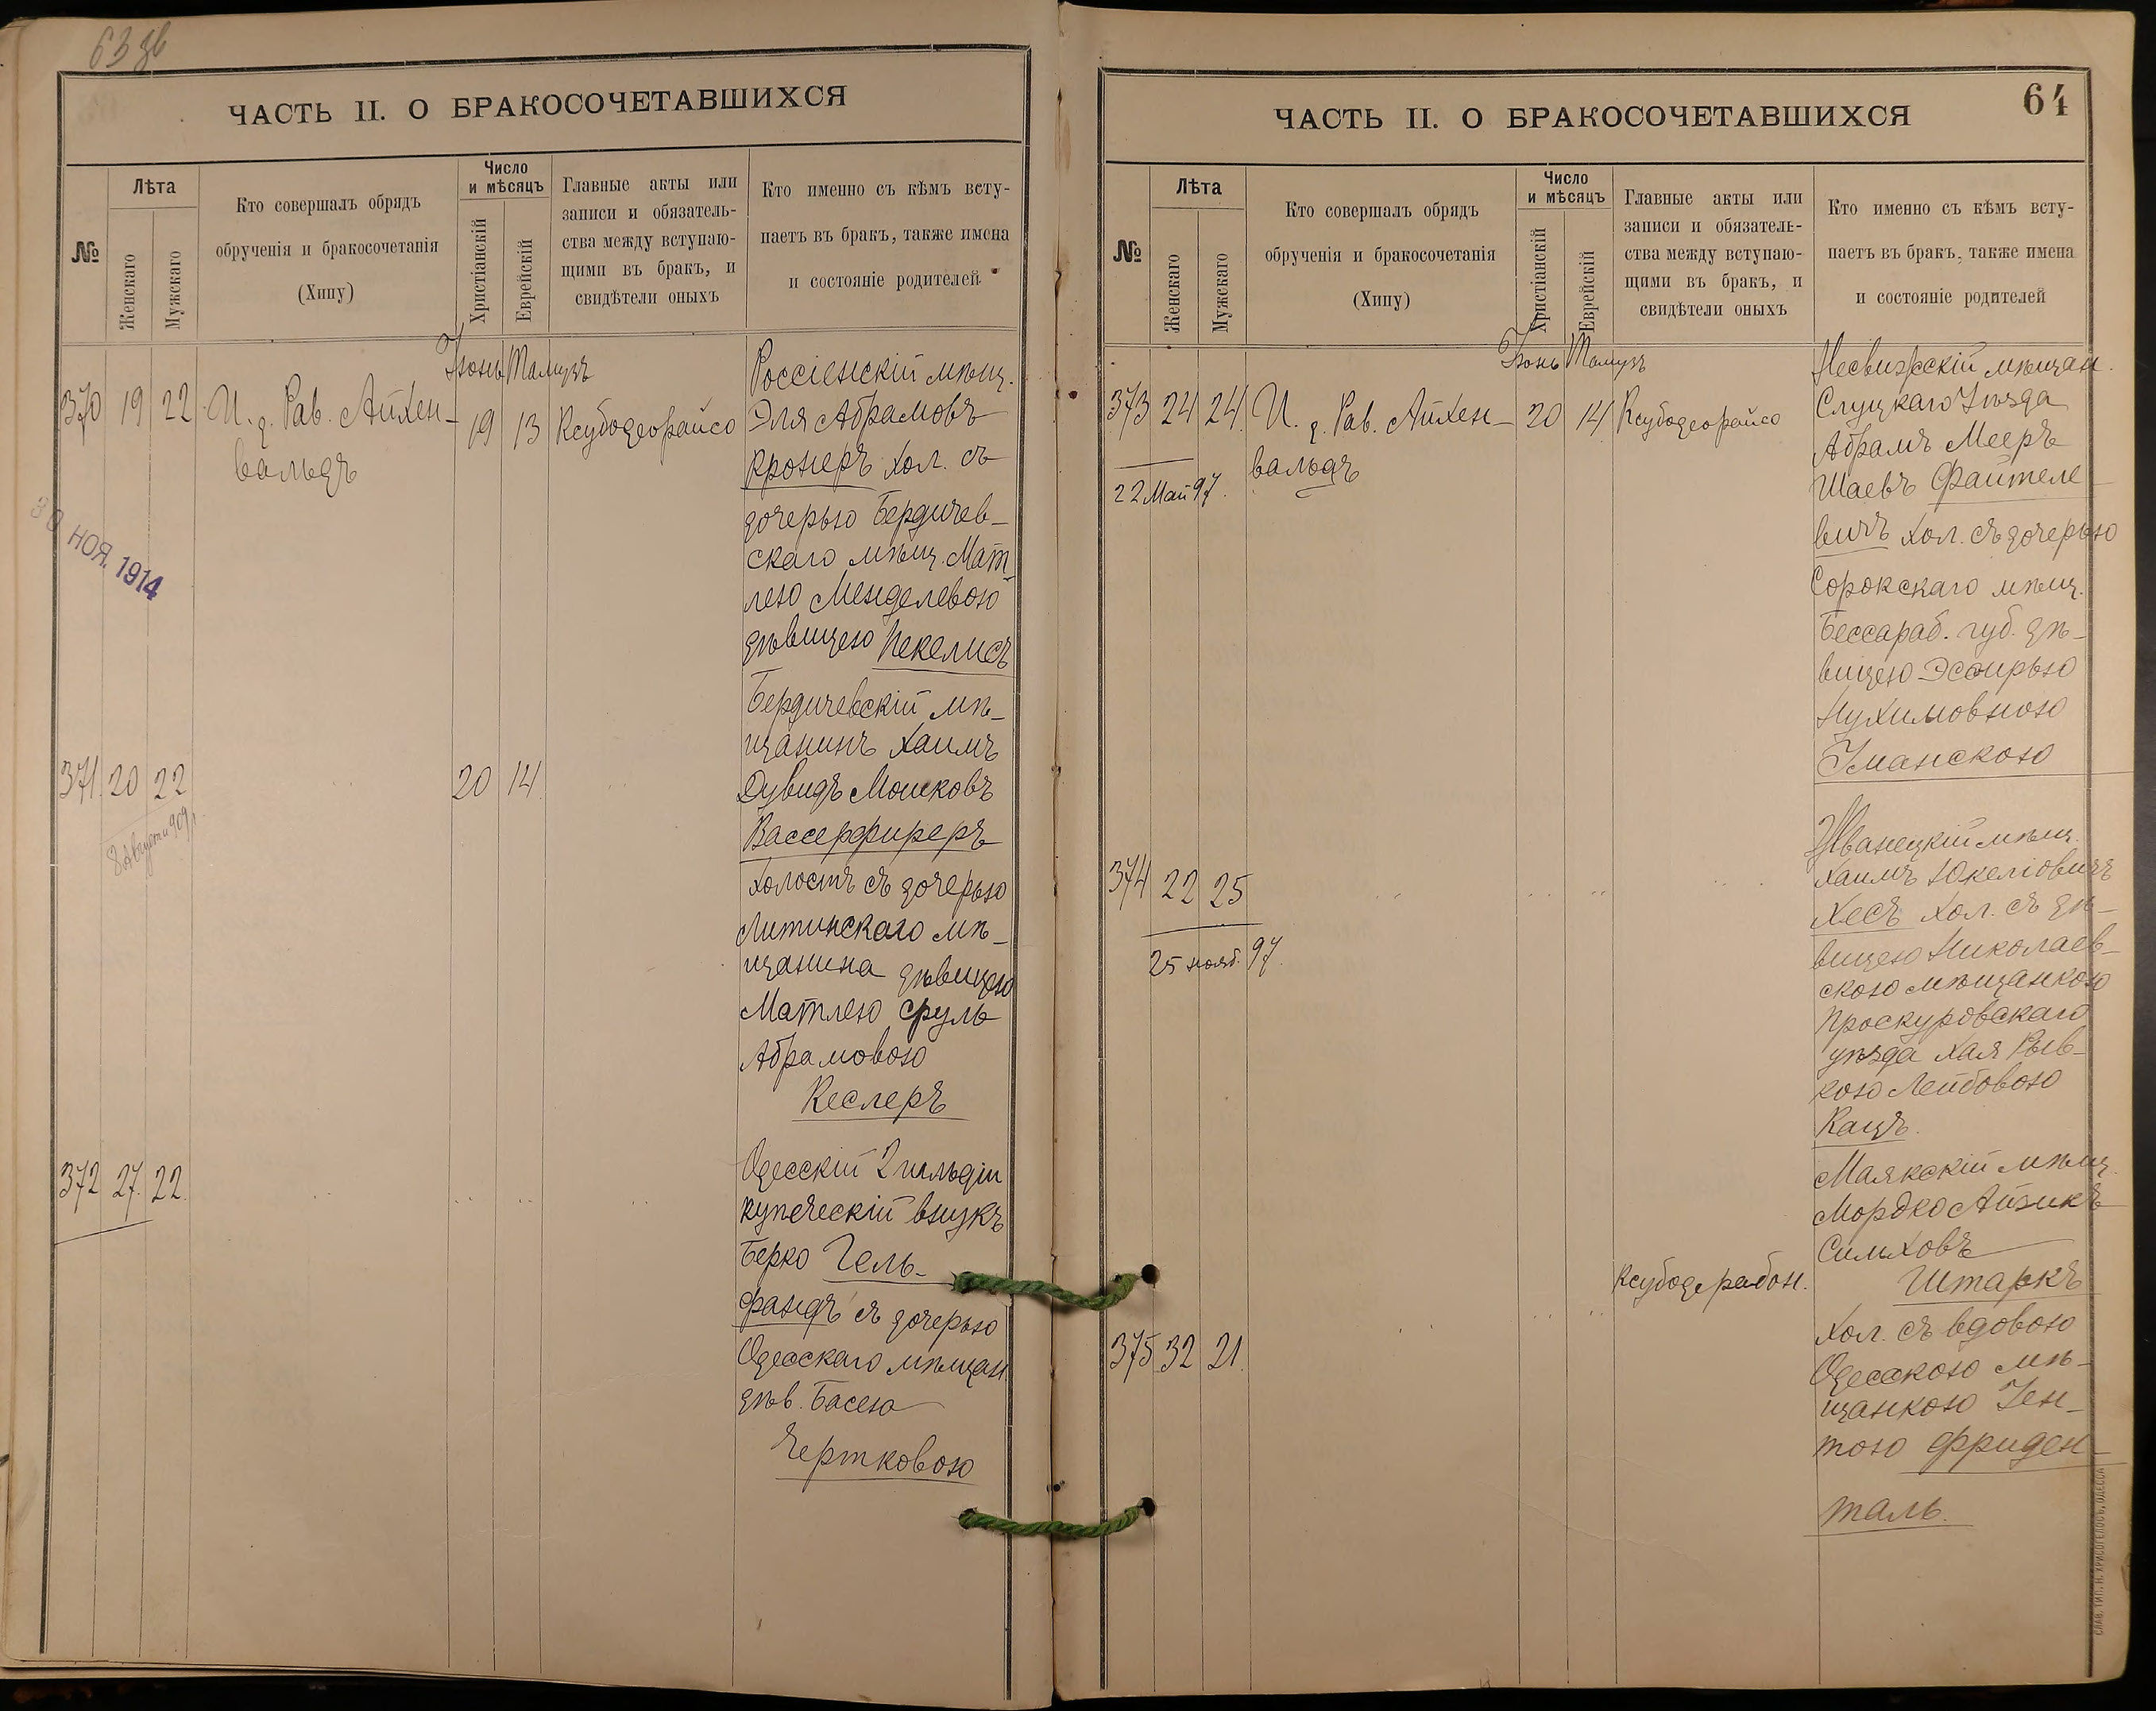 63 зв
ЧАСТЬ II. О БРАКОСОЧЕТАВШИХСЯ
№
Лѣта
Женскаго
Мужскаго
Кто совершалъ обрядъ
обрученія и бракосочетанія
(Хипу)
Число
и мѣсяцъ
Христіанскій
Еврейскій
Главные акты или
записи и обязатель-
ства между вступаю-
щими въ бракъ, и
свидѣтели оныхъ
Кто именно съ кѣмъ всту-
паетъ въ бракъ, также имена
и состояніе родителей
Іюнь Тамузъ
370 19 22 И. д. Рав. Айхен-
вальдъ
19 13 Ксубодеорайсо
Россіенскій мѣщ.
Эля Абрамовъ
Кронеръ хол. съ
дочерью Бердичев-
скаго мѣщ. Мат-
лею Менделевою
дѣвицею Пекелисъ
30 НОЯ. 1914
371 20 22
8 Августа 909 г.
20 14
Бердичевскій мѣ-
щанинъ Хаимъ
Дувидъ Мошковъ
Вассерфиреръ
холостъ съ дочерью
Литинскаго мѣ-
щанина дѣвицею
Матлею Сруль
Абрамовою
Кеслеръ
372 27 22
Одесскій 2 гильдіи
купеческій внукъ
Берко Гель-
фандъ съ дочерью
Одесскаго мѣщан.
дѣв. Басею
Чертковою
64
ЧАСТЬ II. О БРАКОСОЧЕТАВШИХСЯ
№
Лѣта
Женскаго
Мужскаго
Кто совершалъ обрядъ
обрученія и бракосочетанія
(Хипу)
Число
и мѣсяцъ
Христіанскій
Еврейскій
Главные акты или
записи и обязатель-
ства между вступаю-
щими въ бракъ, и
свидѣтели оныхъ
Кто именно съ кѣмъ всту-
паетъ въ бракъ, также имена
и состояніе родителей
Іюнь Тамузъ
373 24 24 И. д. Рав. Айхен-
вальдъ
22 Май 97.
20 14 Ксубодеорайсо
Несвижскій мѣщан.
Слуцкаго Уѣзда
Абрамъ Мееръ
Шаевъ Файтеле
вичъ хол. съ дочерью
Сорокскаго мѣщ.
Бессараб. губ. дѣ-
вицею Эсѳирью
Нухимовною
Уманскою
374 22 25
25 нояб. 97.
Жванецкій мѣщ.
Хаимъ Юкеліовичъ
Хесъ хол. съ дѣ-
вицею Николаев-
скою мѣщанкою
Проскуровскаго
уѣзда Хая Рыв-
кою Лейбовою
Кацъ.
375 32 21.
Ксубодерабон.
Маякскій мѣщ.
Мордко Айзикъ
Симховъ
Штаркъ
хол. съ вдовою
Одесскою мѣ-
щанкою Ген-
тою Фриден-
таль.
СЛАВ. ТИП. Н. ХРИСОГЕЛОСЪ, ОДЕССА